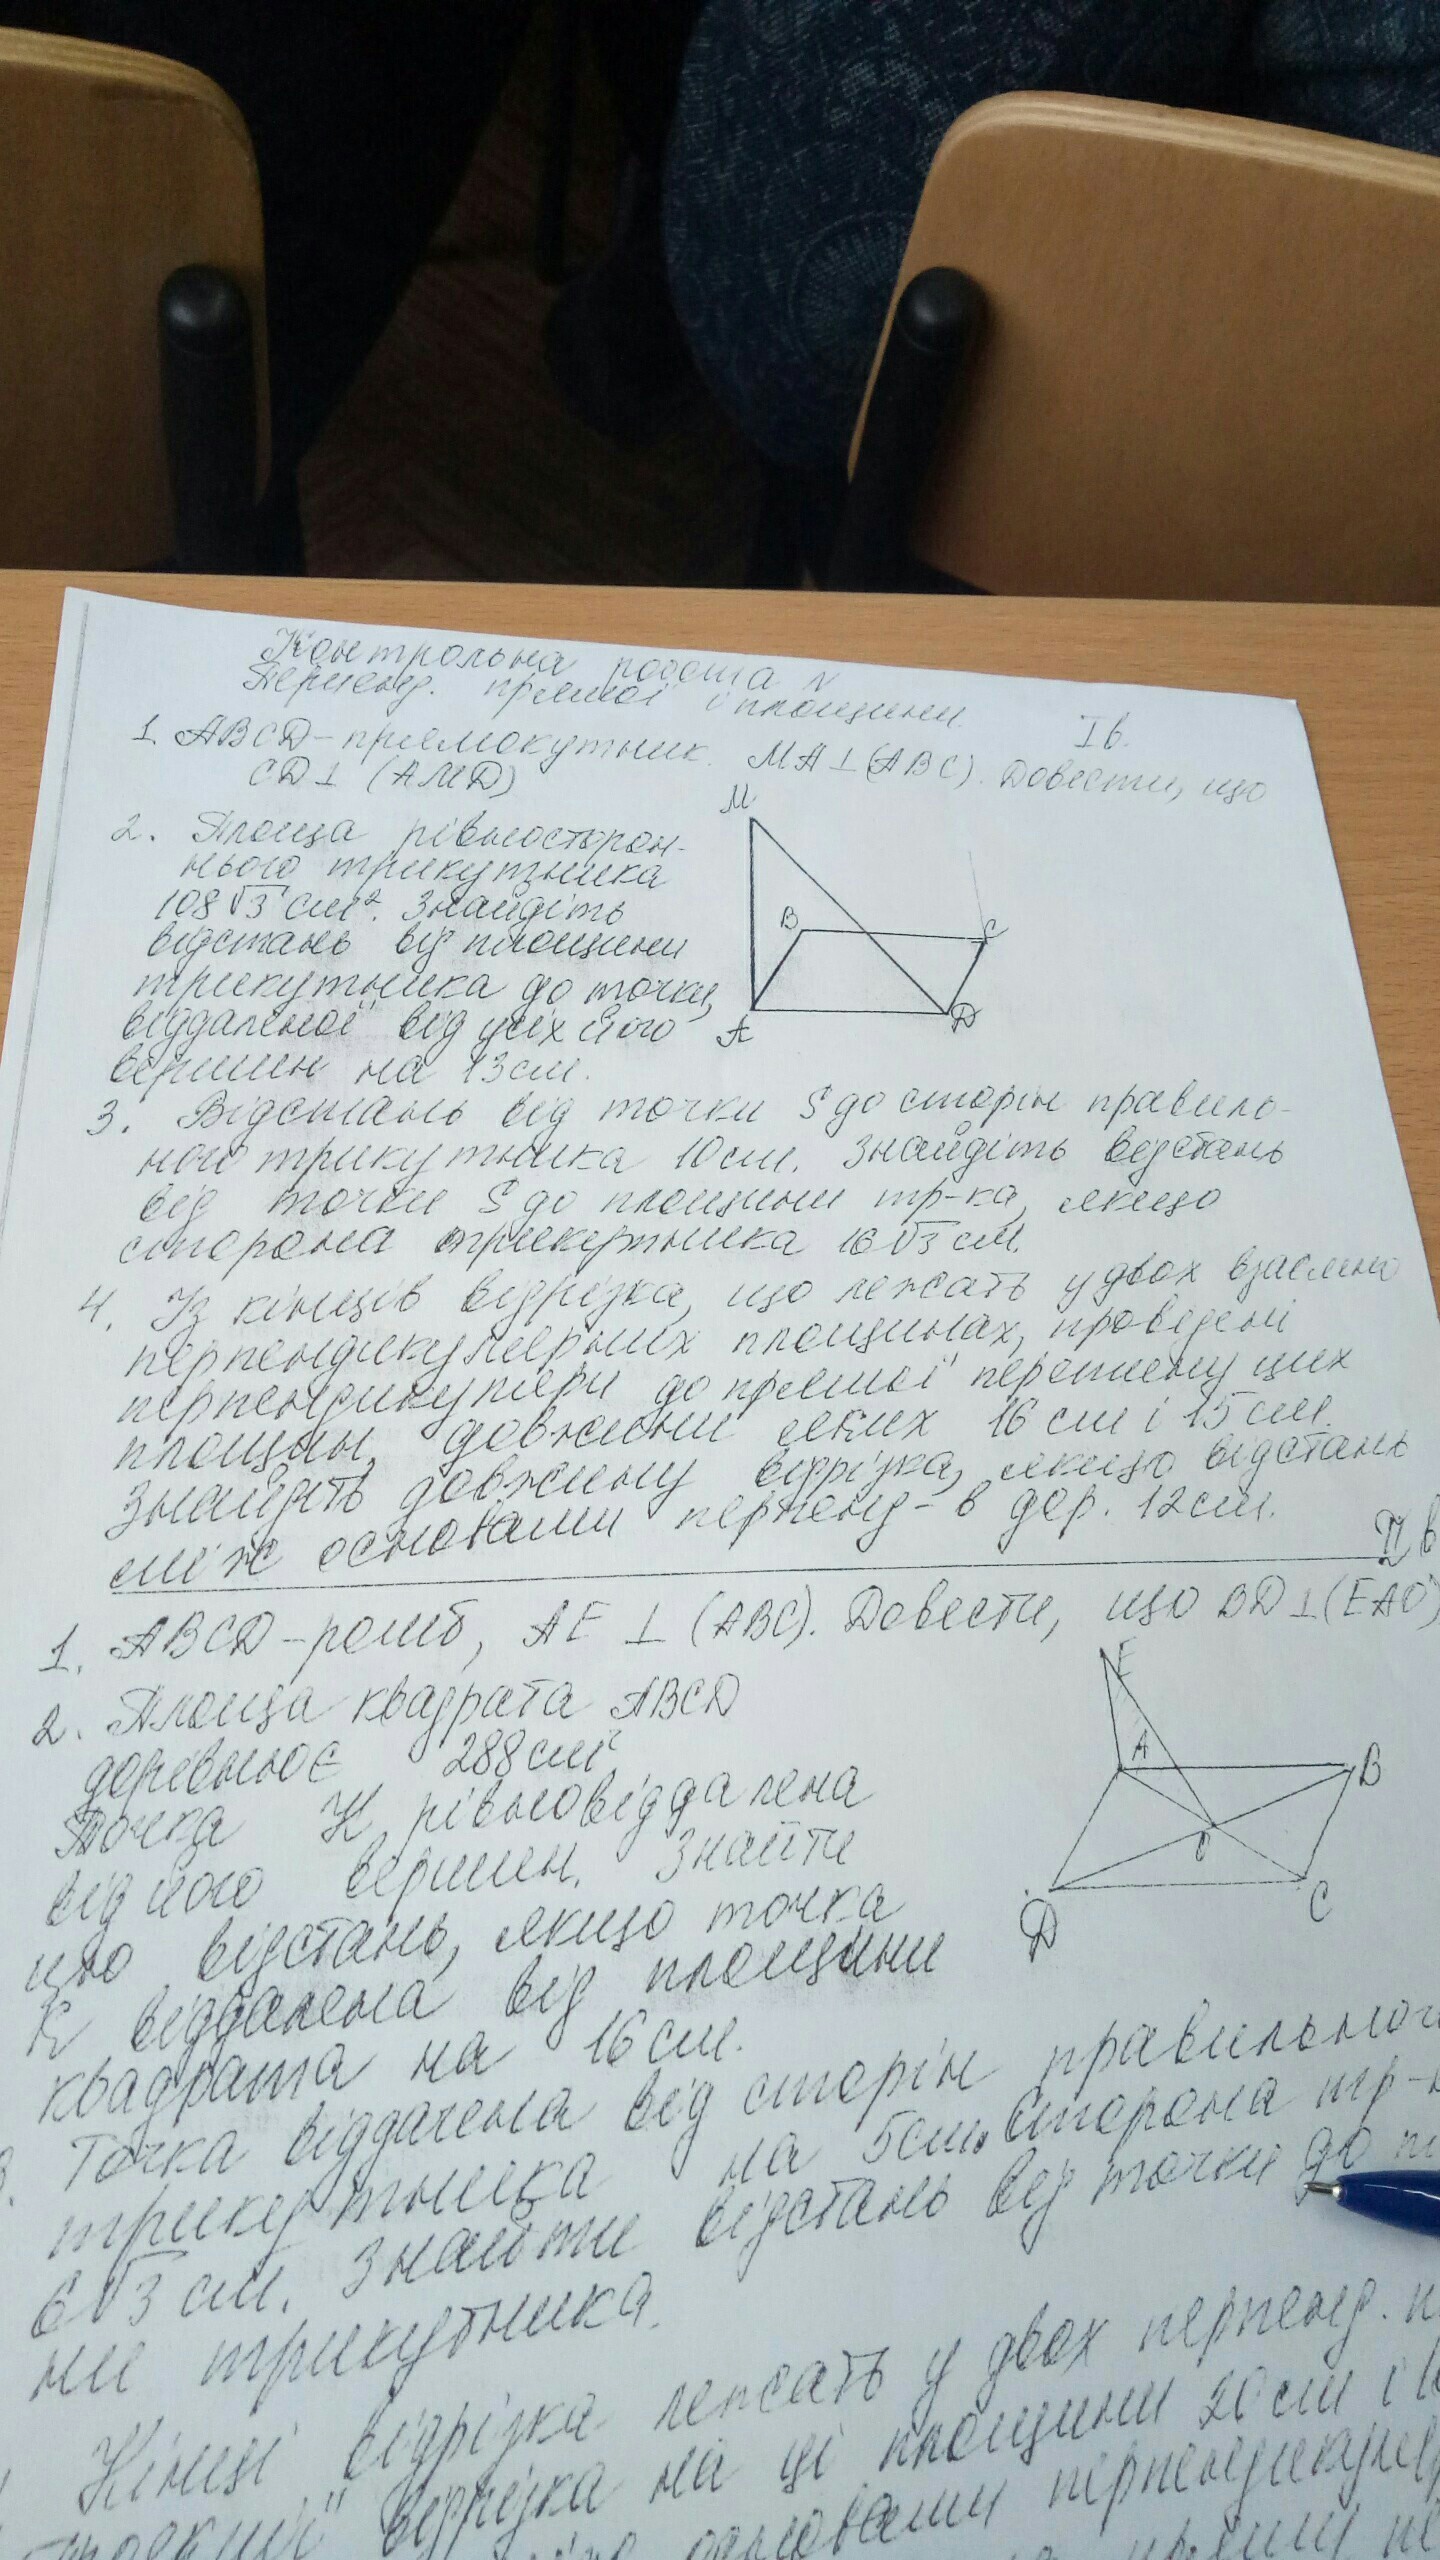 Контрольна робота №
Перпенд. прямої і площини. Ів.
1. ABCD - прямокутник. MA⊥(ABC). Довести, що
CD⊥ (AMD)
2. Площа рівносторон-
нього трикутника
108√3 см². Знайдіть
відстань від площини
трикутника до точки,
віддаленої від усіх його
вершин на 13 см.
M
B
C
A
D
3. Відстань від точки S до сторін правиль-
ного трикутника 10 см. Знайдіть відстань
від точки S до площини тр-ка, якщо
сторона трикутника 16√3 см.
4. Із кінців відрізка, що лежать у двох взаємно
перпендикулярних площинах, проведені
перпендикуляри до прямої перетину цих
площин, довжини яких 16 см і 15 см.
Знайдіть довжину відрізка, якщо відстань
між основами перпенд-в дор. 12 см.
ІІ в
1. ABCD - ромб, AE ⊥ (ABC). Довести, що BD⊥(EAO)
2. Площа квадрата ABCD
дорівнює 288 см²
Точка К рівновіддалена
від його вершин. Знайти
цю відстань, якщо точка
К віддалена від площини
квадрата на 16 см.
E
A
B
O
D
C
3. Точка віддалена від сторін правильного
трикутника на 5 см. Сторона тр-к
6√3 см. Знайти відстань від точки до п
ни трикутника.
Кінці відрізка лежать у двох перпенд. п
відрізка на ці площини 20 см і
основами перпендикуляр